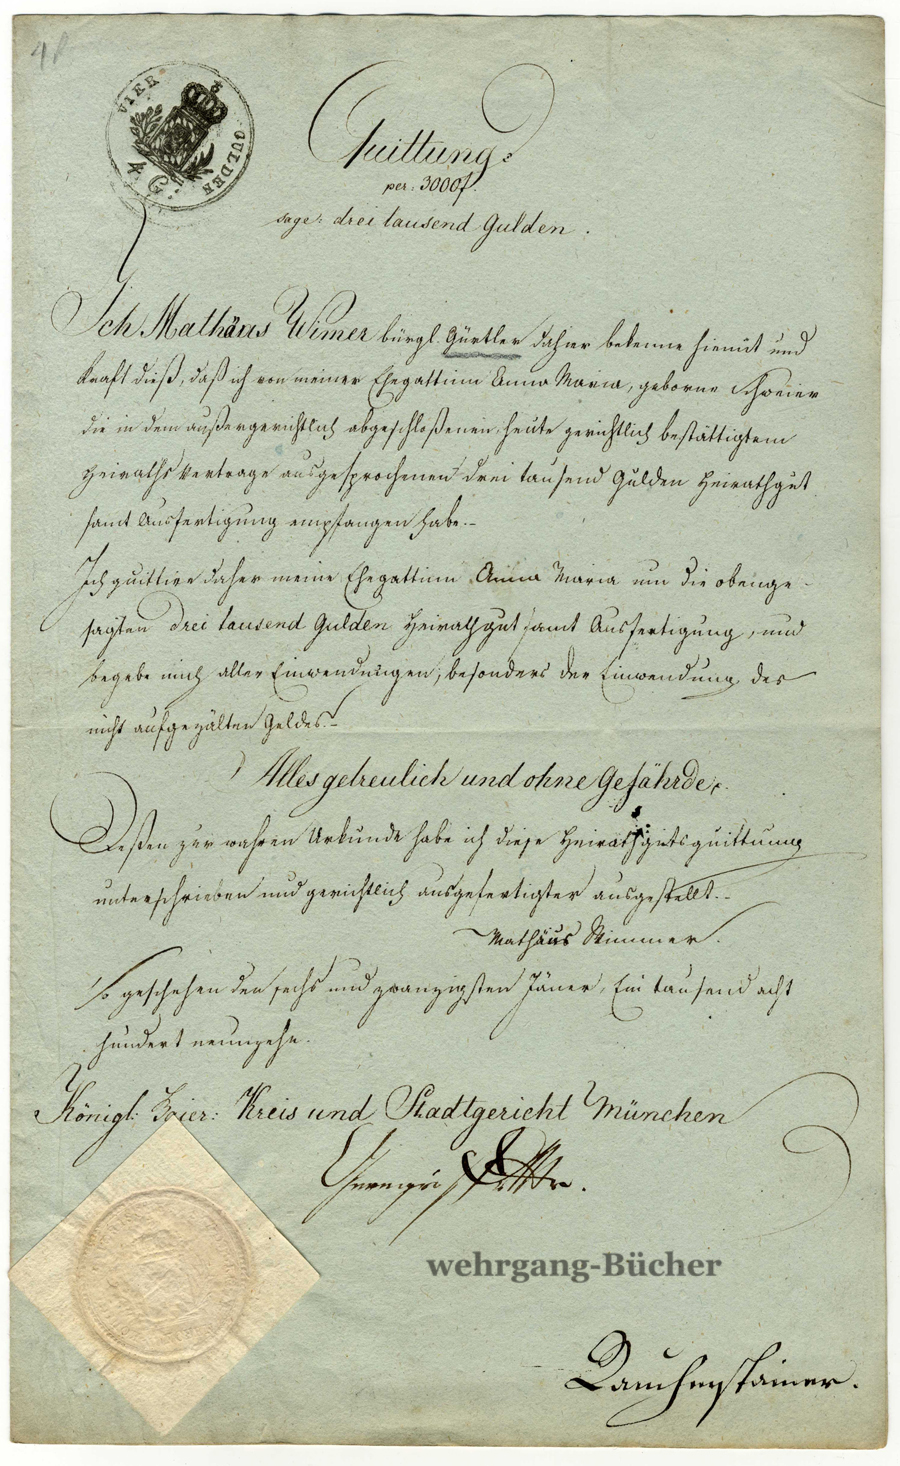 VIER GULDEN
4 G:
Quittung
per: 3000f.
sage: drei tausend Gulden.
Ich Mathäus Wimer bürgl. Gürtler dahier bekenne hiemit und
kraft dieß, daß ich von meiner Ehegattinn Anna Maria, geborne Schweier
die in dem außergerichtlich abgeschloßenen, heute gerichtlich bestättigtem
Heiraths Vertrage ausgesprochenen drei tausend Gulden Heirathgut
samt Ausfertigung empfangen habe.-
Ich quittire daher meine Ehegattinn Anna Maria um die obenge-
sagten drei tausend Gulden Heirathgut samt Ausfertigung, und
begebe mich aller Einwendungen, besonders der Einwendung des
nicht aufgezälten Geldes.-
Alles getreulich und ohne Gefährde.
Deßen zur wahren Urkunde habe ich diese Heirathsgutsquittung
unterschrieben und gerichtlich ausgefertigter ausgestellt.-
Mathäus Wimmer.
So geschehen den sechs und zwanzigsten Jäner, Ein tausend acht
hundert neunzehn.
Königl: Baier: Kreis und Stadtgericht München
wehrgang-Bücher